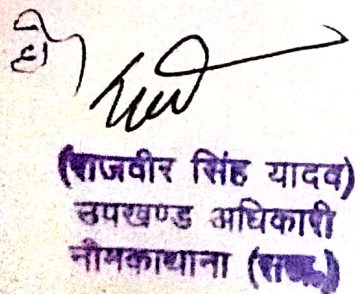 ही
(राजवीर सिंह यादव)
उपखण्ड अधिकारी
नीमकाथाना (राज.)